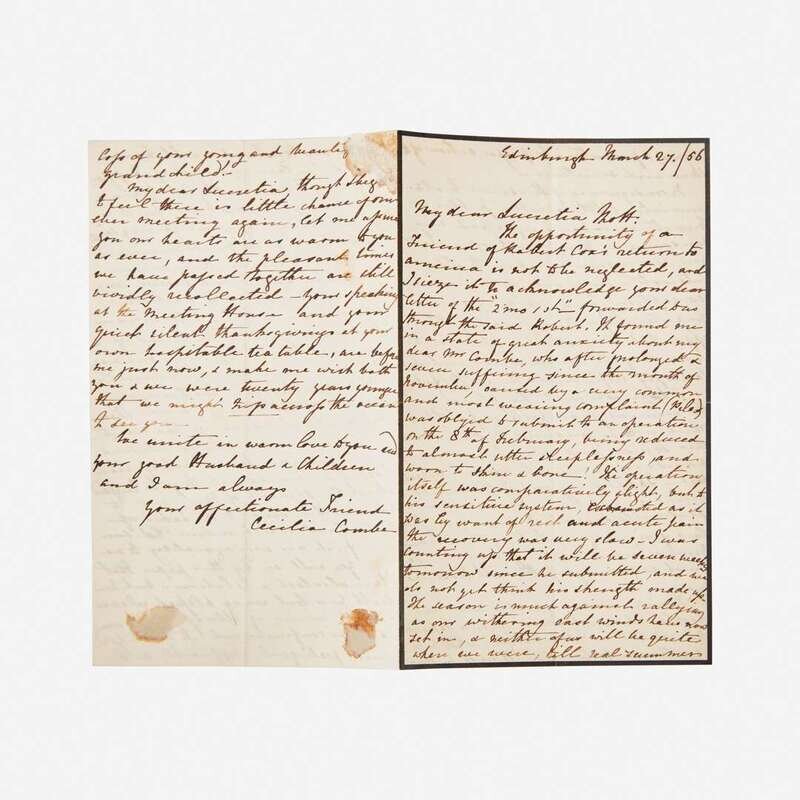 Edinburgh March 27./56
My dear Lucretia Mott.
The opportunity of a
Friend of Robert Cox's return to
america is not to be neglected, and
I sieze it to acknowledge your dear
letter of the "2mo 1st" forwarded to us
through the said Robert. It found me
in a state of great anxiety about my
dear Mr Combe, who after prolonged &
severe suffering since the month of
November, caused by a very common
and most wearing complaint (Piles)
was obliged to submit to an operation
on the 8th of February, being reduced
to almost utter sleeplessness, and
worn to skin & bone! The operation
itself was comparatively slight, but to
his sensitive system, exhausted as it
was by want of rest and acute pain
the recovery was very slow - I was
counting up that it will be seven weeks
tomorrow since he submitted, and we
do not yet think his strength made up.
The season is much against rallying
as our withering east winds have now
set in, & neither of us will be quite
where we were, till real summers
loss of your young and beautiful
grandchild.
My dear Lucretia, though I begin
to feel there is little chance of our
ever meeting again, let me assure
you our hearts are as warm to you
as ever, and the pleasant times
we have passed together are still
vividly recollected - your speaking
at the Meeting House and your
quiet silent thanksgivings at your
own hospitable tea table, are before
me just now, & make me wish both
you & we were twenty years younger
that we might trip across the ocean
to see you
We unite in warm love to you and
your good Husband & Children
and I am always
Your affectionate Friend
Cecilia Combe